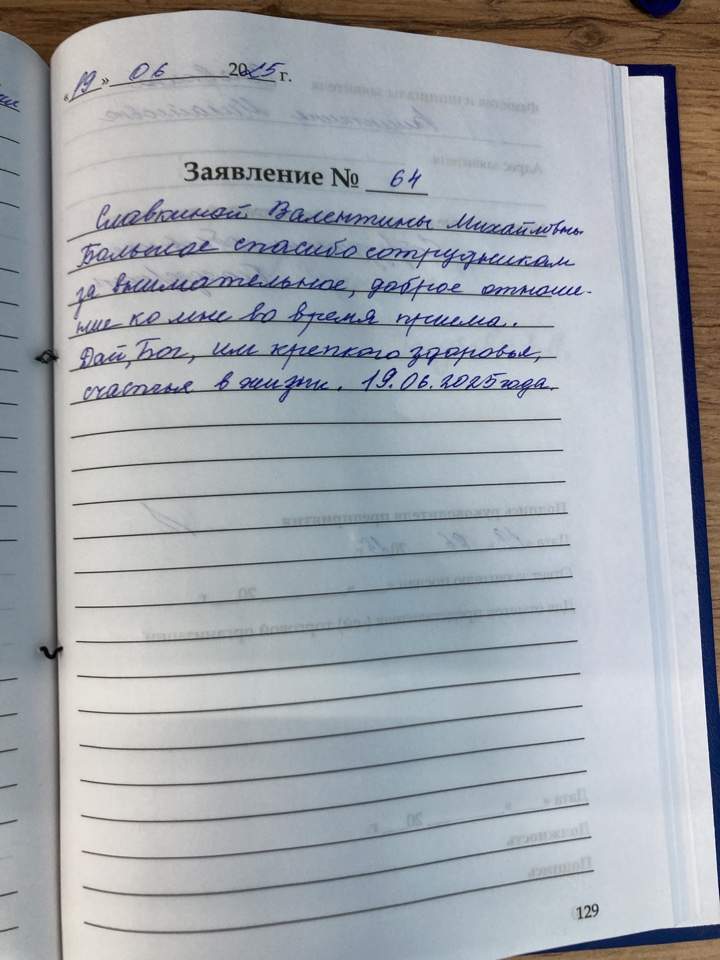 «19» 06 2025 г.
Заявление № 64
Славкиной Валентины Михайловны
Большое спасибо сотрудникам
за внимательное, доброе отноше-
ние ко мне во время приема..
Дай, Бог, им крепкого здоровья,
счастья в жизни. 19.06.2025 года.
129